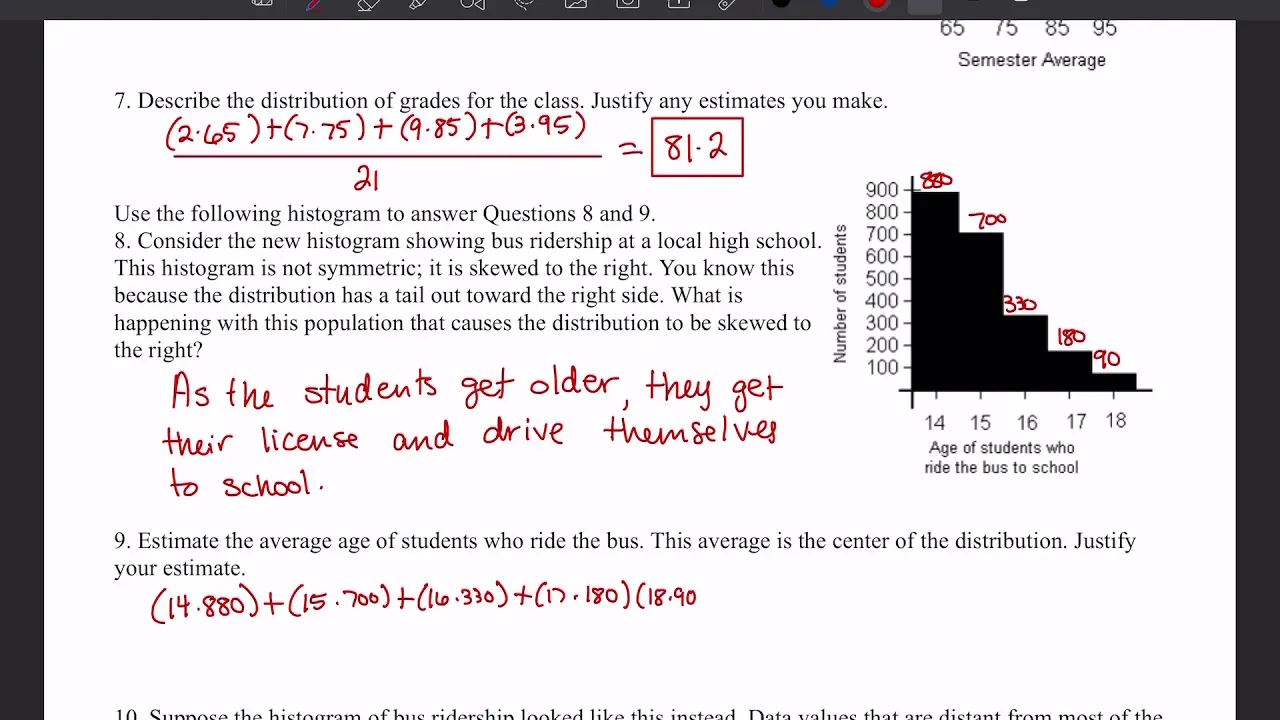 65 75 85 95
Semester Average
7. Describe the distribution of grades for the class. Justify any estimates you make.
(2·65)+(7·75)+(9·85)+(3·95)
21
= 81.2
Use the following histogram to answer Questions 8 and 9.
8. Consider the new histogram showing bus ridership at a local high school.
This histogram is not symmetric; it is skewed to the right. You know this
because the distribution has a tail out toward the right side. What is
happening with this population that causes the distribution to be skewed to
the right?
As the students get older, they get
their license and drive themselves
to school.
Number of students
900
800
700
600
500
400
300
200
100
880
700
330
180
90
14 15 16 17 18
Age of students who
ride the bus to school
9. Estimate the average age of students who ride the bus. This average is the center of the distribution. Justify
your estimate.
(14·880)+(15·700)+(16·330)+(17·180)(18·90
10. Suppose the histogram of bus ridership looked like this instead. Data values that are distant from most of the